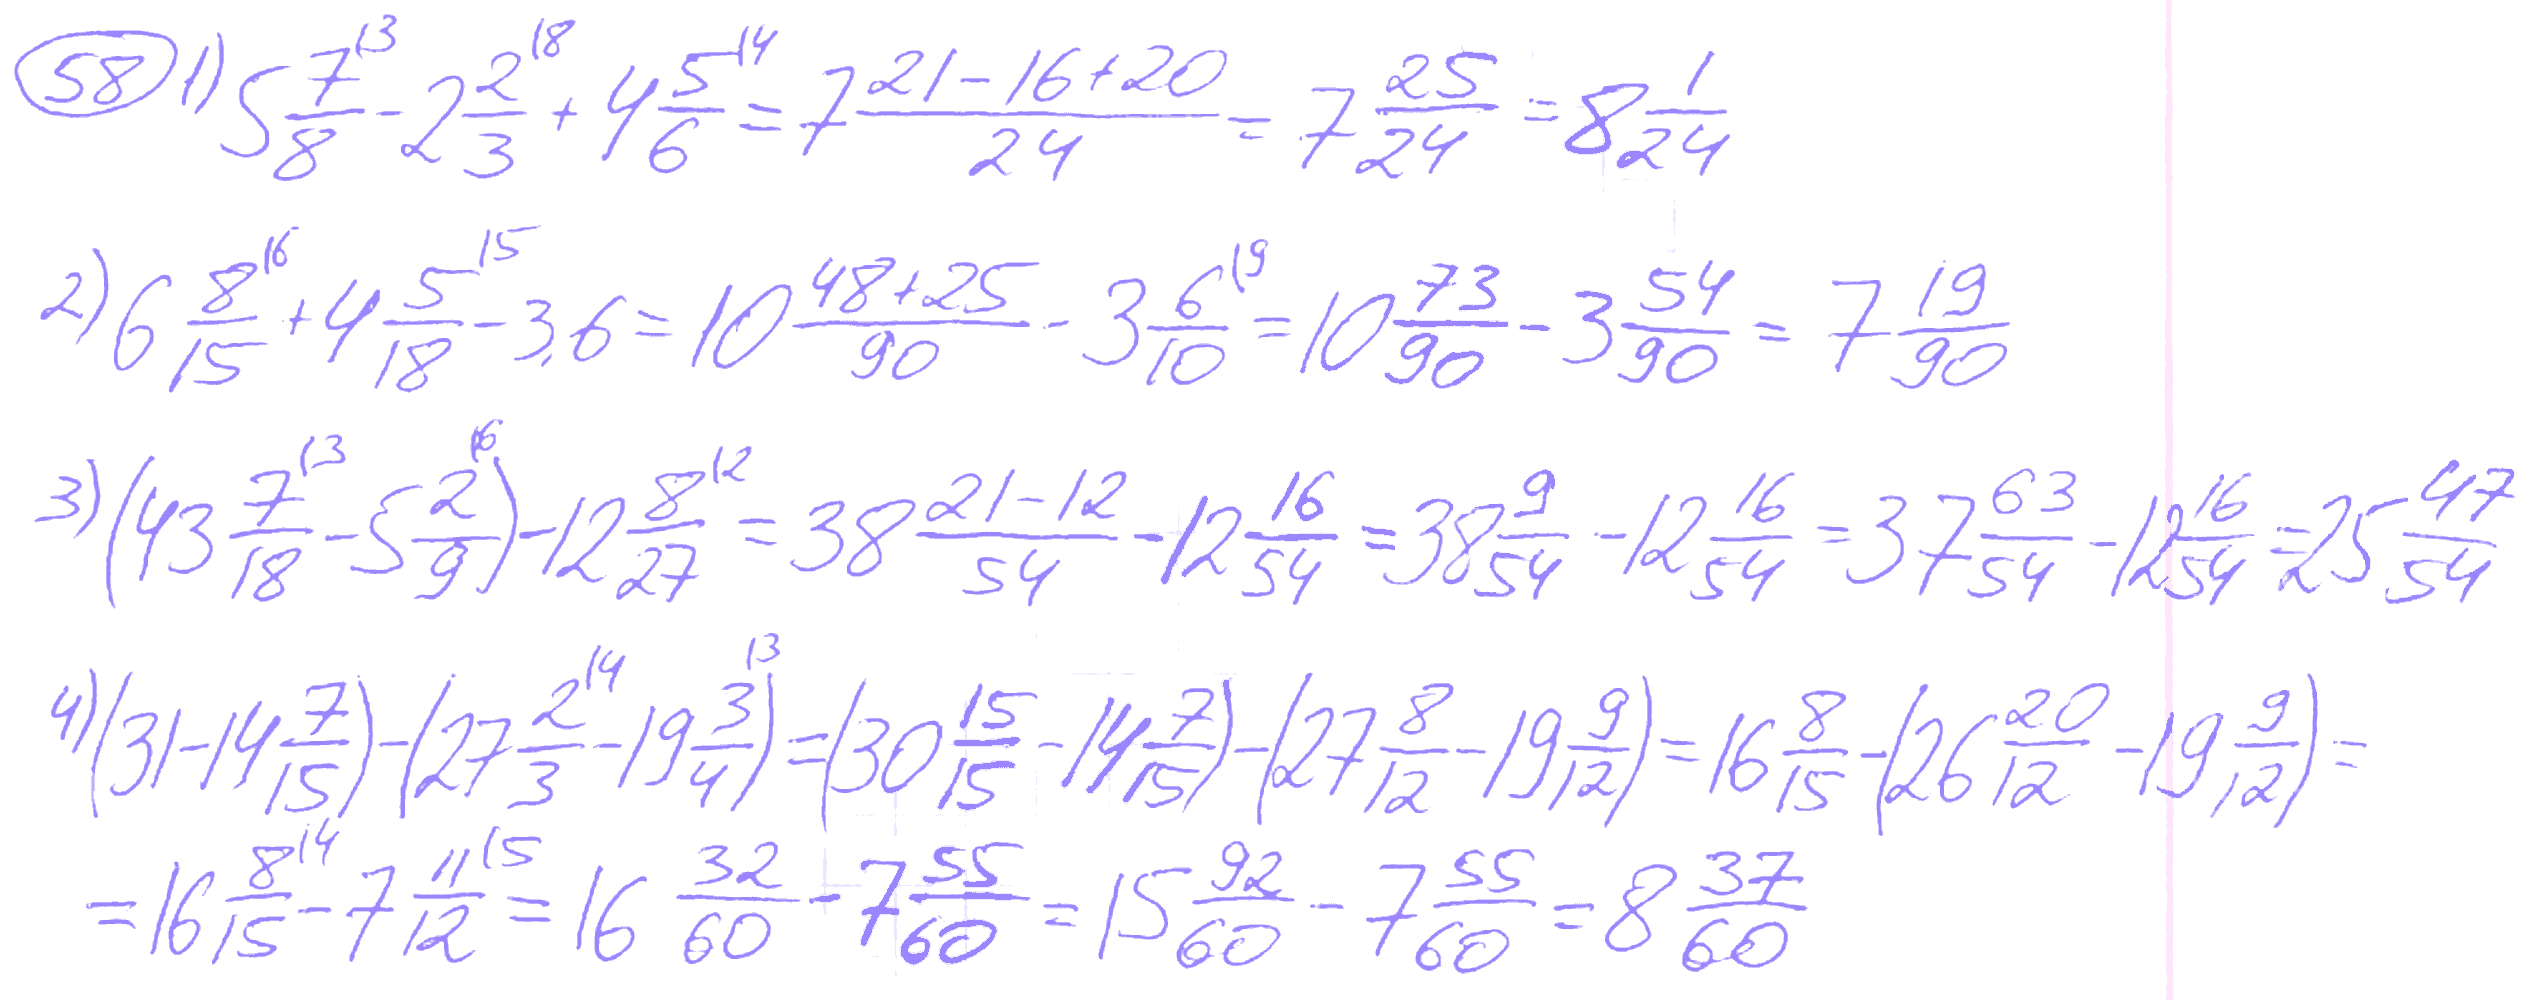 58 1) 5 7/8 ⁽³ - 2 2/3 ⁽⁸ + 4 5/6 ⁽⁴ = 7 (21-16+20)/24 = 7 25/24 = 8 1/24
2) 6 8/15 ⁽⁶ + 4 5/18 ⁽⁵ - 3,6 = 10 (48+25)/90 - 3 6/10 ⁽⁹ = 10 73/90 - 3 54/90 = 7 19/90
3) (43 7/18 ⁽³ - 5 2/9 ⁽⁶) - 12 8/27 ⁽² = 38 (21-12)/54 - 12 16/54 = 38 9/54 - 12 16/54 = 37 63/54 - 12 16/54 = 25 47/54
4) (31 - 14 7/15) - (27 2/3 ⁽⁴ - 19 3/4 ⁽³) = (30 15/15 - 14 7/15) - (27 8/12 - 19 9/12) = 16 8/15 - (26 20/12 - 19 9/12) =
= 16 8/15 ⁽⁴ - 7 11/12 ⁽⁵ = 16 32/60 - 7 55/60 = 15 92/60 - 7 55/60 = 8 37/60